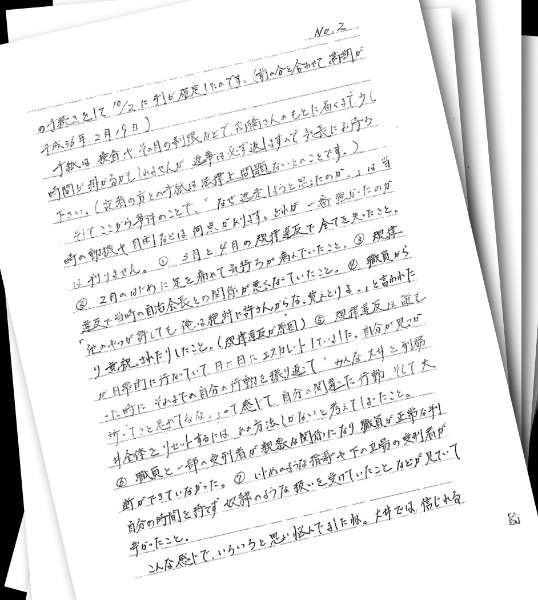 No.2
の手続きをして10/2に刑が確定したのです。(前の分と合わせて満期が
平成36年2月19日)
手紙は検査やその月の制限などで、高橋さんのもとに届くまで少し
時間が掛かるかもしれませんが、返事は必ず返しますので気長にお待ち
下さい。(記者の方との手紙は法律上問題ないとのことです。)
そしてここから事件のことで、「なぜ逃走しようと思ったのか。」は当
時の動機や目的などは何点かあります。どれが一番強かったのか
は判りません。① 3月と4月の規律違反で全てを失ったこと。
② 2月のはじめに足を痛めて気持ちが病んでいたこと。③ 規律
違反で当時の自治会長との関係が悪くなっていたこと。④ 職員から
「他のやつが許しても俺は絶対に許さんからな。覚えとけよ。」と言われた
り無視されたりしたこと。(規律違反が原因) ⑤ 規律違反は誰も
が日常的に行なっていて日に日にエスカレートしていました。自分が見つか
った時にそれまでの自分の行動を振り返って「みんな大井を刑務
所ってこと忘れてるな。」って感じて、自分の間違った行動、そして大
井全体をリセットするにはこの方法しかないと考えてしまったこと。
⑥ 職員と一部の受刑者が親密な関係になり職員が正常な判
断ができていなかった。⑦ いじめのような指導や下の立場の受刑者が
自分の時間を持てず奴隷のような扱いを受けていたことなどが見ていて
辛かったこと。
こんな感じで、いろいろと思い悩んでましたね。大井では、信じれる